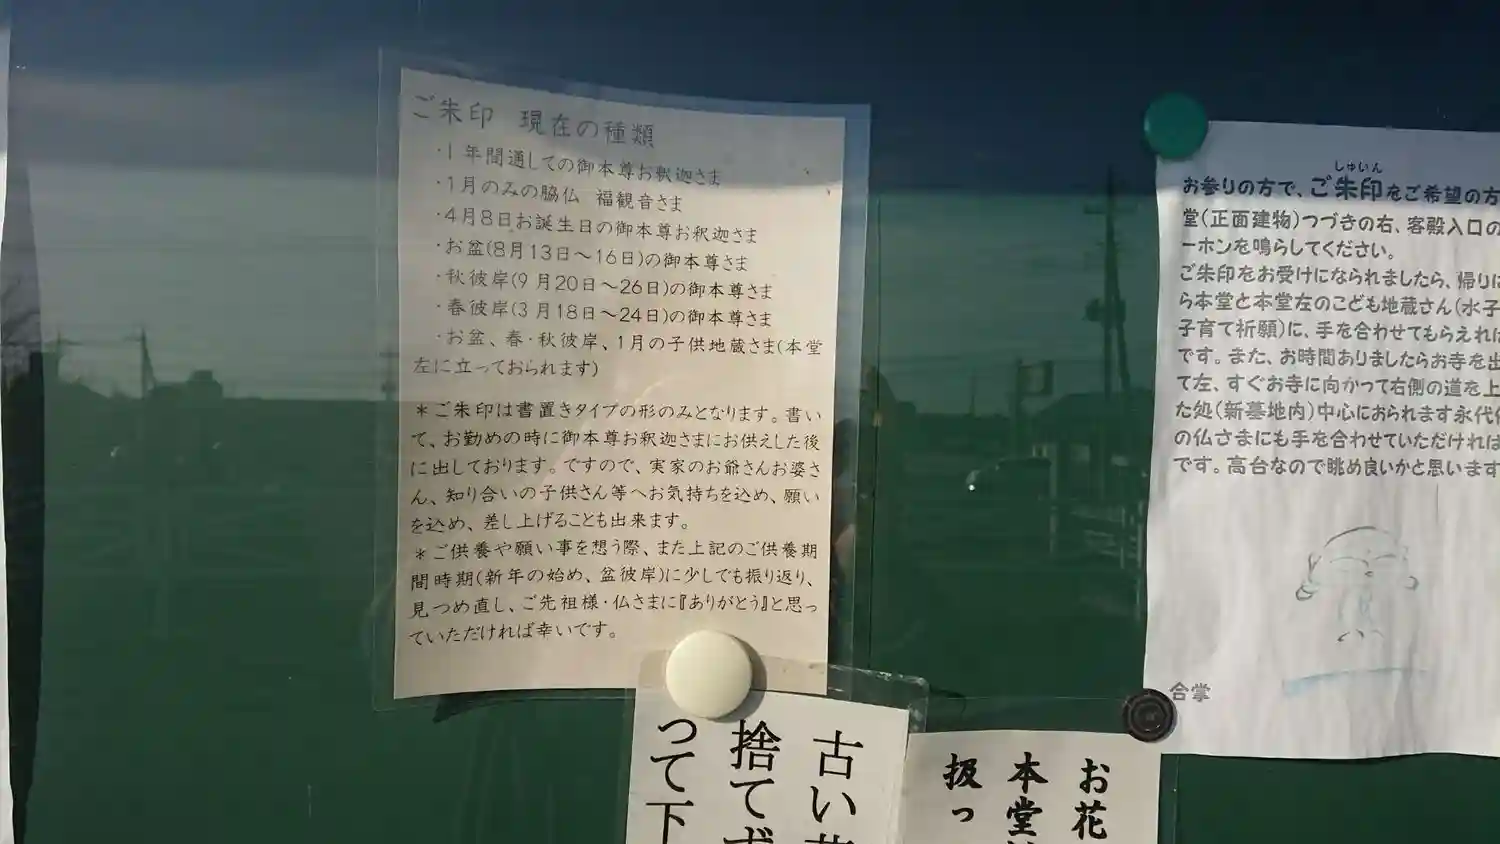 ご朱印　現在の種類
・1年間通しての御本尊お釈迦さま
・1月のみの脇仏　福観音さま
・4月8日お誕生日の御本尊お釈迦さま
・お盆(8月13日～16日)の御本尊さま
・秋彼岸(9月20日～26日)の御本尊さま
・春彼岸(3月18日～24日)の御本尊さま
・お盆、春・秋彼岸、1月の子供地蔵さま(本堂
左に立っておられます)
＊ご朱印は書置きタイプの形のみとなります。書い
て、お勤めの時に御本尊お釈迦さまにお供えした後
に出しております。ですので、実家のお爺さんお婆さ
ん、知り合いの子供さん等へお気持ちを込め、願い
を込め、差し上げることも出来ます。
＊ご供養や願い事を想う際、また上記のご供養期
間時期(新年の始め、盆彼岸)に少しでも振り返り、
見つめ直し、ご先祖様・仏さまに『ありがとう』と思っ
ていただければ幸いです。
しゅいん
お参りの方で、ご朱印をご希望の方
堂(正面建物)つづきの右、客殿入口の
ーホンを鳴らしてください。
ご朱印をお受けになられましたら、帰りに
ら本堂と本堂左のこども地蔵さん(水子
子育て祈願)に、手を合わせてもらえれば
です。また、お時間ありましたらお寺を出
て左、すぐお寺に向かって右側の道を上
た処(新墓地内)中心におられます永代供
の仏さまにも手を合わせていただければ
です。高台なので眺め良いかと思います
合掌
古い
捨てず
って下
お花
本堂
扱っ